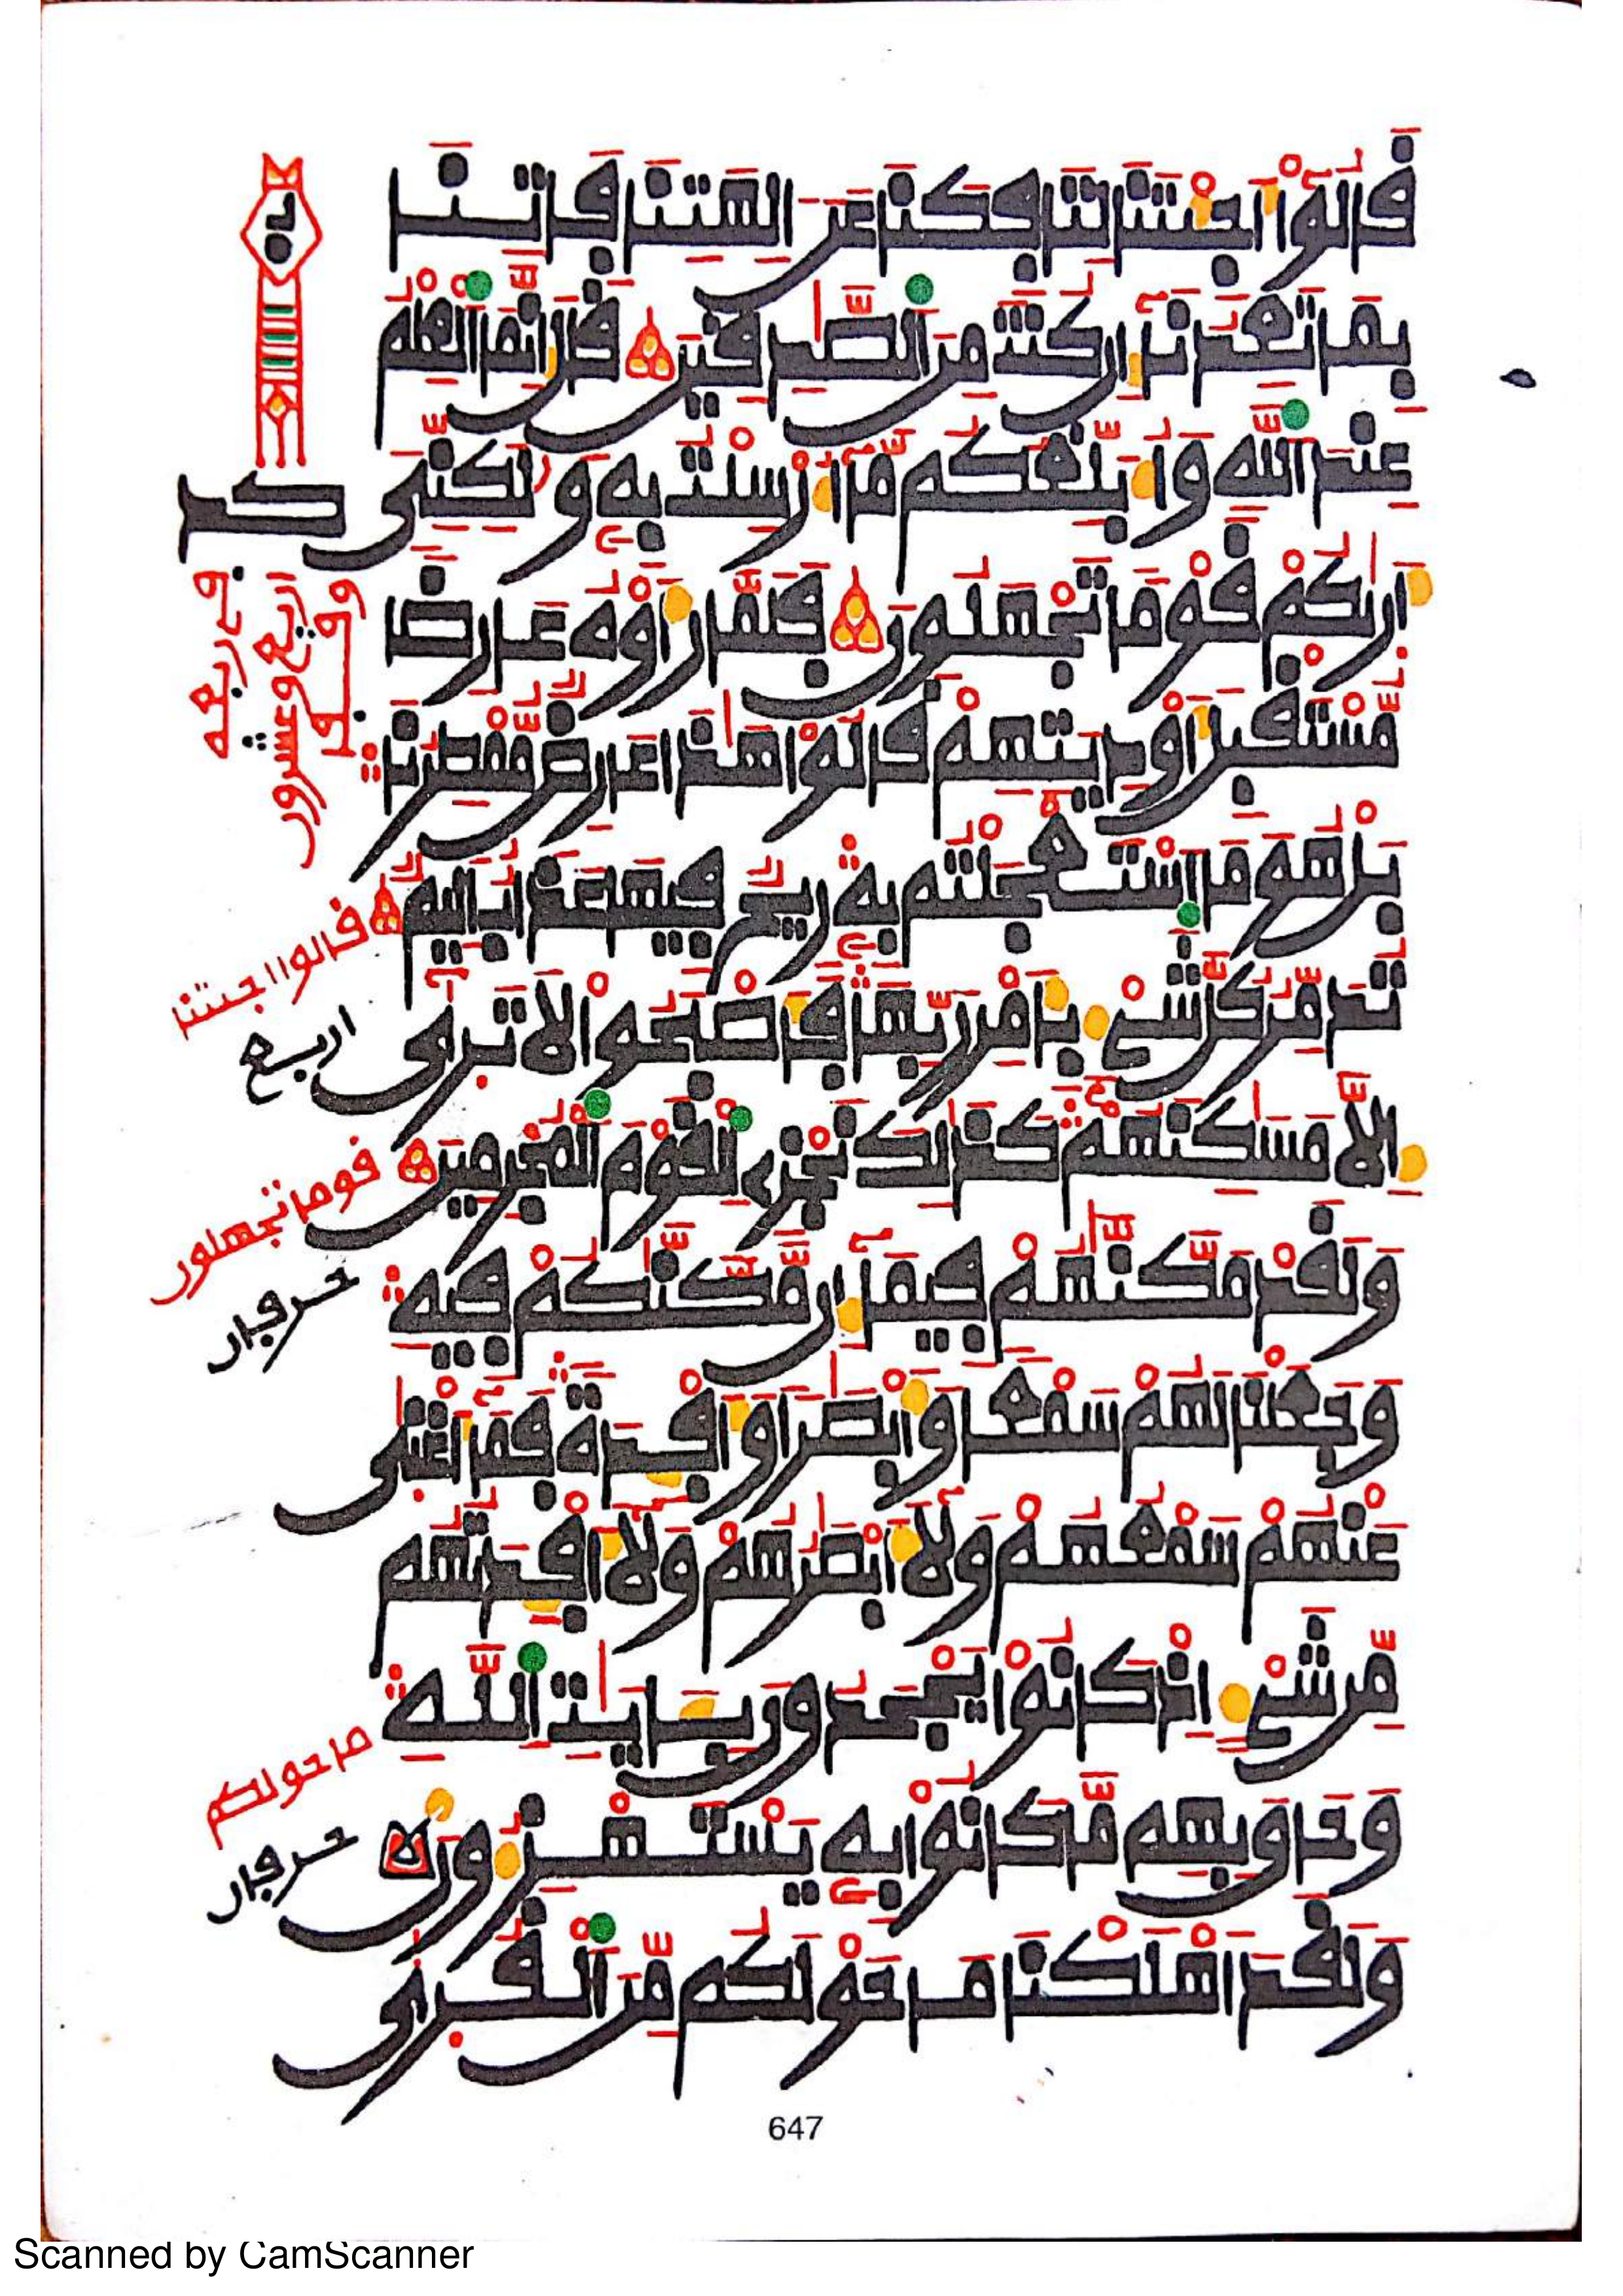 قَالُوٓاْ أَجِئْتَنَا لِتَافِكَنَا عَنَ الِهَتِنَا فَاتِنَا
بِمَا تَعِدُنَآ إِن كُنتَ مِنَ الصَّٰدِقِينَ قَالَ إِنَّمَا الْعِلْمُ
عِندَ اللَّهِ وَأُبَلِّغُكُم مَّآ أُرْسِلْتُ بِهِ وَلَٰكِنِّى
أَرَىٰكُمْ قَوْمًا تَجْهَلُونَ فَلَمَّا رَأَوْهُ عَارِضًا
مُّسْتَقْبِلَ أَوْدِيَتِهِمْ قَالُواْ هَٰذَا عَارِضٌ مُّمْطِرُنَا
بَلْ هُوَ مَا اسْتَعْجَلْتُم بِهِ رِيحٌ فِيهَا عَذَابٌ أَلِيمٌ
تُدَمِّرُ كُلَّ شَىْءٍ بِأَمْرِ رَبِّهَا فَأَصْبَحُواْ لَا تَرَىٰٓ
إِلَّا مَسَٰكِنَهُمْ كَذَٰلِكَ نَجْزِى الْقَوْمَ الْمُجْرِمِينَ
وَلَقَدْ مَكَّنَّٰهُمْ فِيمَآ إِن مَّكَّنَّٰكُمْ فِيهِ
وَجَعَلْنَا لَهُمْ سَمْعًا وَأَبْصَٰرًا وَأَفْـِٕدَةً فَمَآ أَغْنَىٰ
عَنْهُمْ سَمْعُهُمْ وَلَآ أَبْصَٰرُهُمْ وَلَآ أَفْـِٕدَتُهُم
مِّن شَىْءٍ إِذْ كَانُواْ يَجْحَدُونَ بِـَٔايَٰتِ اللَّهِ
وَحَاقَ بِهِم مَّا كَانُواْ بِهِ يَسْتَهْزِءُونَ
وَلَقَدْ أَهْلَكْنَا مَا حَوْلَكُم مِّنَ الْقُرَىٰ
كد
وقف
اربع وعشرون
في ربعه
قالوا اجئتنا
اربع
قوما تجهلون
حرفان
ما حولكم
حرفان
647
Scanned by CamScanner